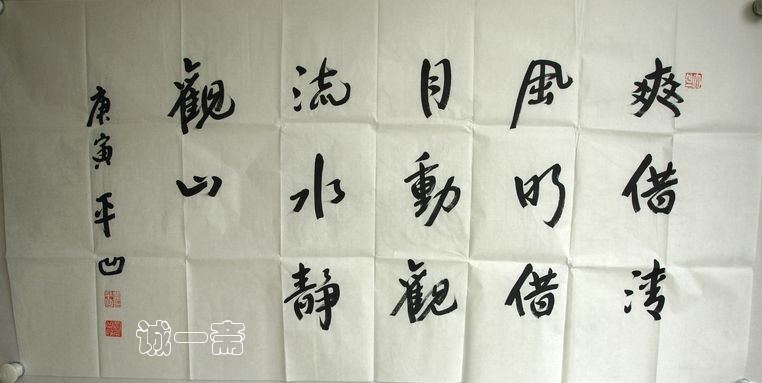 爽借清
風明借
月動觀
流水靜
觀山
庚寅平凹
诚一斋